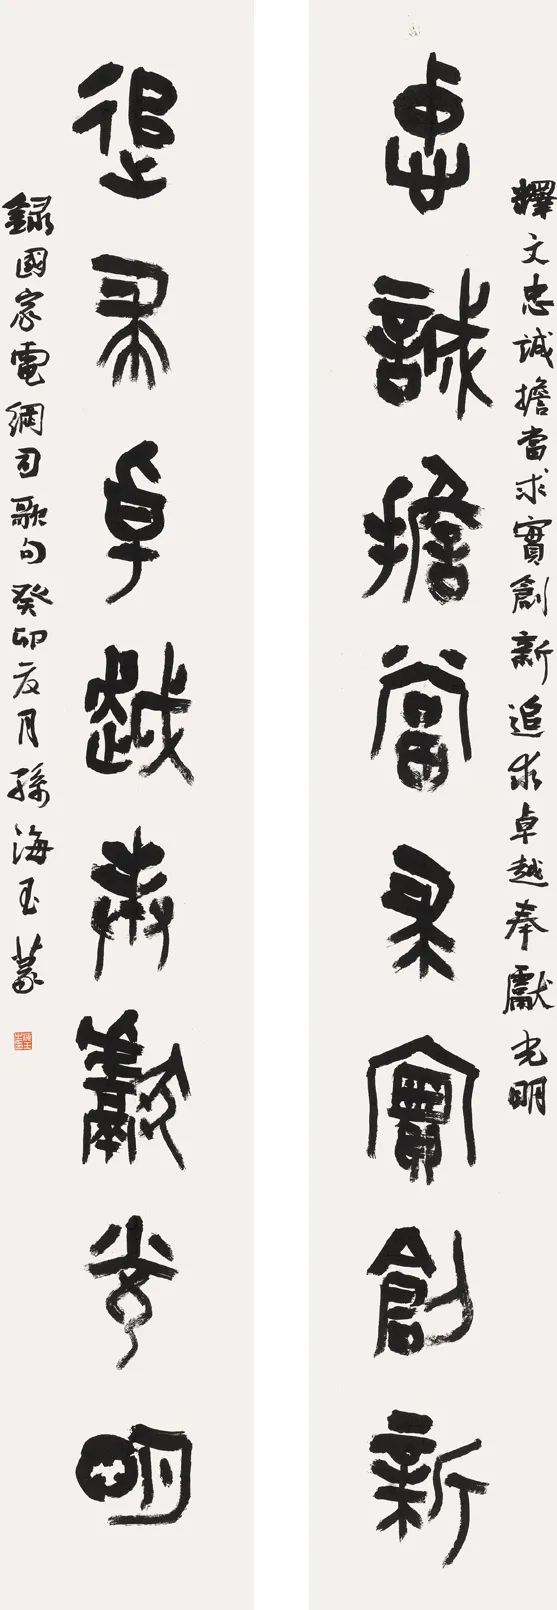 釋文忠誠擔當求實創新追求卓越奉獻光明
忠誠擔當求實創新
追求卓越奉獻光明
錄國家電網司歌句癸卯夏月孫海玉篆